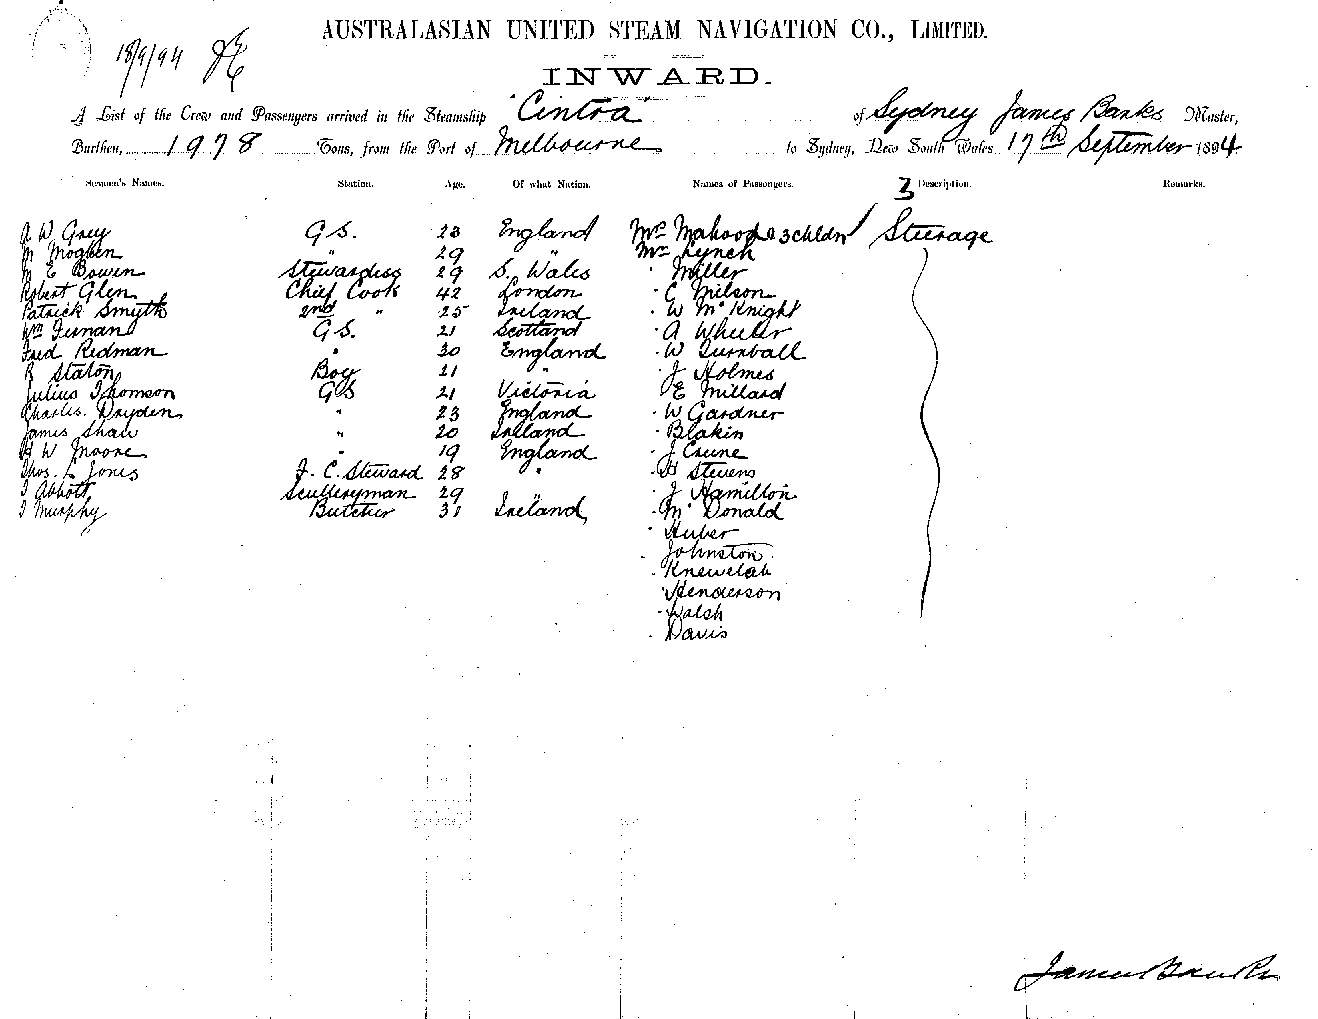 AUSTRALASIAN UNITED STEAM NAVIGATION CO., LIMITED.
18/9/94
INWARD.
A List of the Crew and Passengers arrived in the Steamship Cintra of Sydney James Banks Master,
Burthen, 1978 Tons, from the Port of Melbourne to Sydney, New South Wales 17th September 1894
Seamen's Names. Station. Age. Of what Nation. Names of Passengers. 3 Description. Remarks.
A W Grey G.S. 23 England Mrs Mahood & 3 Chldn Steerage
M 29 " Mrs Lynch
M E Bowen Stewardess 29 S. Wales " Miller
Robert Glen Chief Cook 42 London " C Milson
Patrick Smyth 2nd " 25 Ireland " W McKnight
Wm G.S. 21 Scotland " A Wheeler
Fred Redman " 30 England " W Turnball
R Staton Boy 21 " J Holmes
Julius Thomson GS 21 Victoria " E Millard
Charles Dryden " 23 England " W Gardner
James Shaw " 20 Ireland " Blakin
H W Moore " 19 England " J
Thos. L Jones F. C. Steward 28 " " H Stevens
T Abbott Sculleryman 29 " " J Hamilton
T Murphy Butcher 31 Ireland " McDonald
" Huber
" Johnston
"
" Henderson
" Walsh
" Davis
James Banks